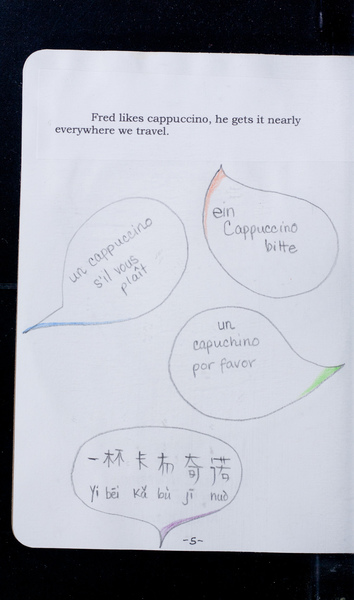 Fred likes cappuccino, he gets it nearly
everywhere we travel.
ein
Cappuccino
bitte
un cappuccino
s'il vous
plaît
un
capuchino
por favor
一杯卡布奇诺
Yi bēi kǎ bù jī nuò
~5~